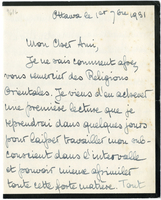 Ottawa le 1er 7bre 1931
Mon Cher Ami,
Je ne sais comment assez
vous remercier des Religions
Orientales. Je viens d'en achever
une première lecture que je
reprendrai dans quelques jours
pour laisser travailler mon sub-
conscient dans l'intervalle
et pouvoir mieux assimiler
toute cette forte matière. Tout